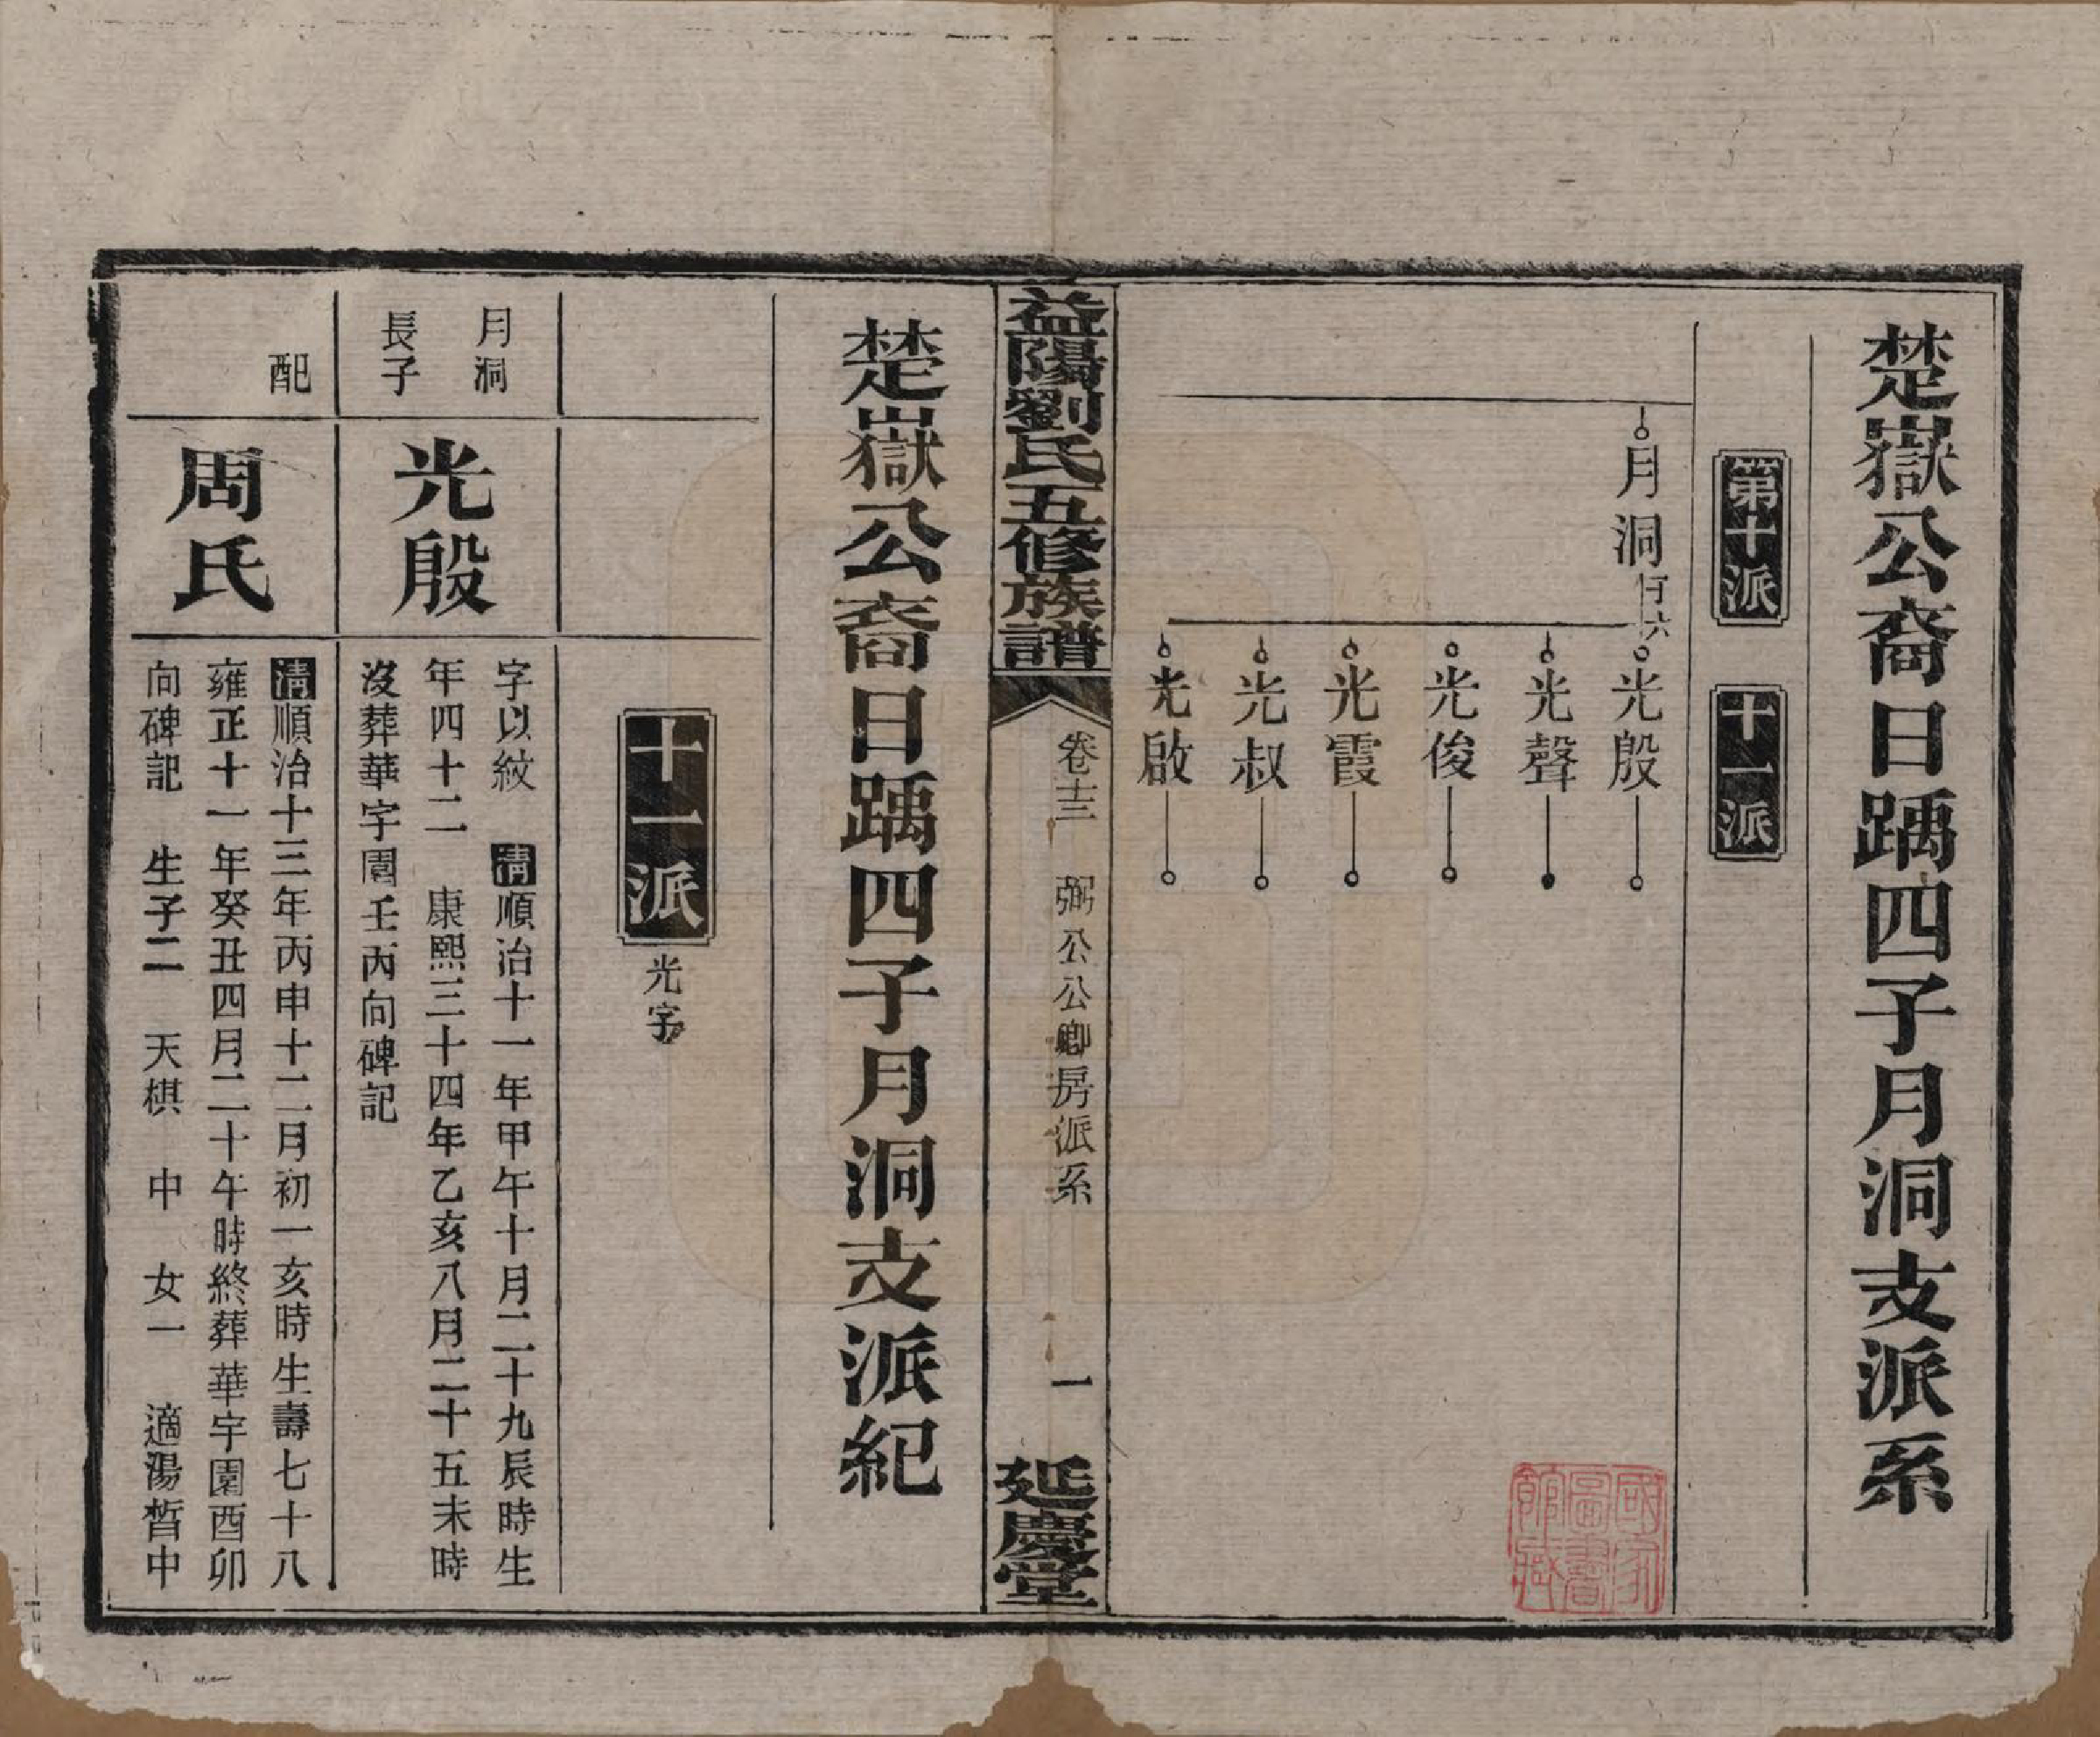 楚嶽公裔日踽四子月洞支派系
第十派
十一派
月洞
光殷
光聲
光俊
光霞
光叔
光啟
益陽劉氏五修族譜
卷十三 弼公公卿房派系
一
延慶堂
楚嶽公裔日踽四子月洞支派紀
十一派 光字
月洞
長子
光殷
字以紋 清順治十一年甲午十月二十九辰時生
年四十二 康熙三十四年乙亥八月二十五未時
沒葬華字園壬丙向碑記
配
周氏
清順治十三年丙申十二月初一亥時生壽七十八
雍正十一年癸丑四月二十午時終葬華宇園酉卯
向碑記 生子二 天棋 中 女一 適湯晳中
國家圖書館藏